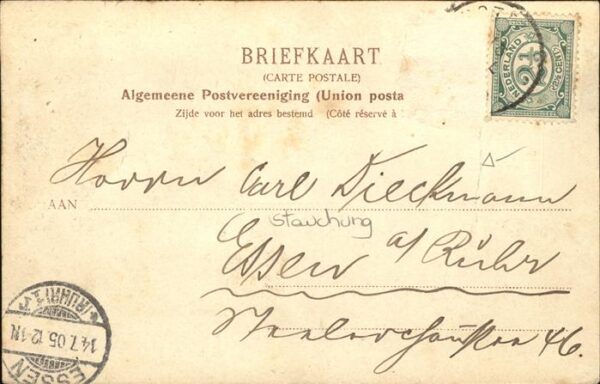 BRIEFKAART
(CARTE POSTALE)
Algemeene Postvereeniging (Union posta
Zijde voor het adres bestemd (Côté réservé à
NEDERLAND
2½
CENT
Herrn Carl Dieckmann
AAN
Stauchung
Essen a/Ruhr
46.
ESSEN
14.7.05.12-1N
(RUHR)